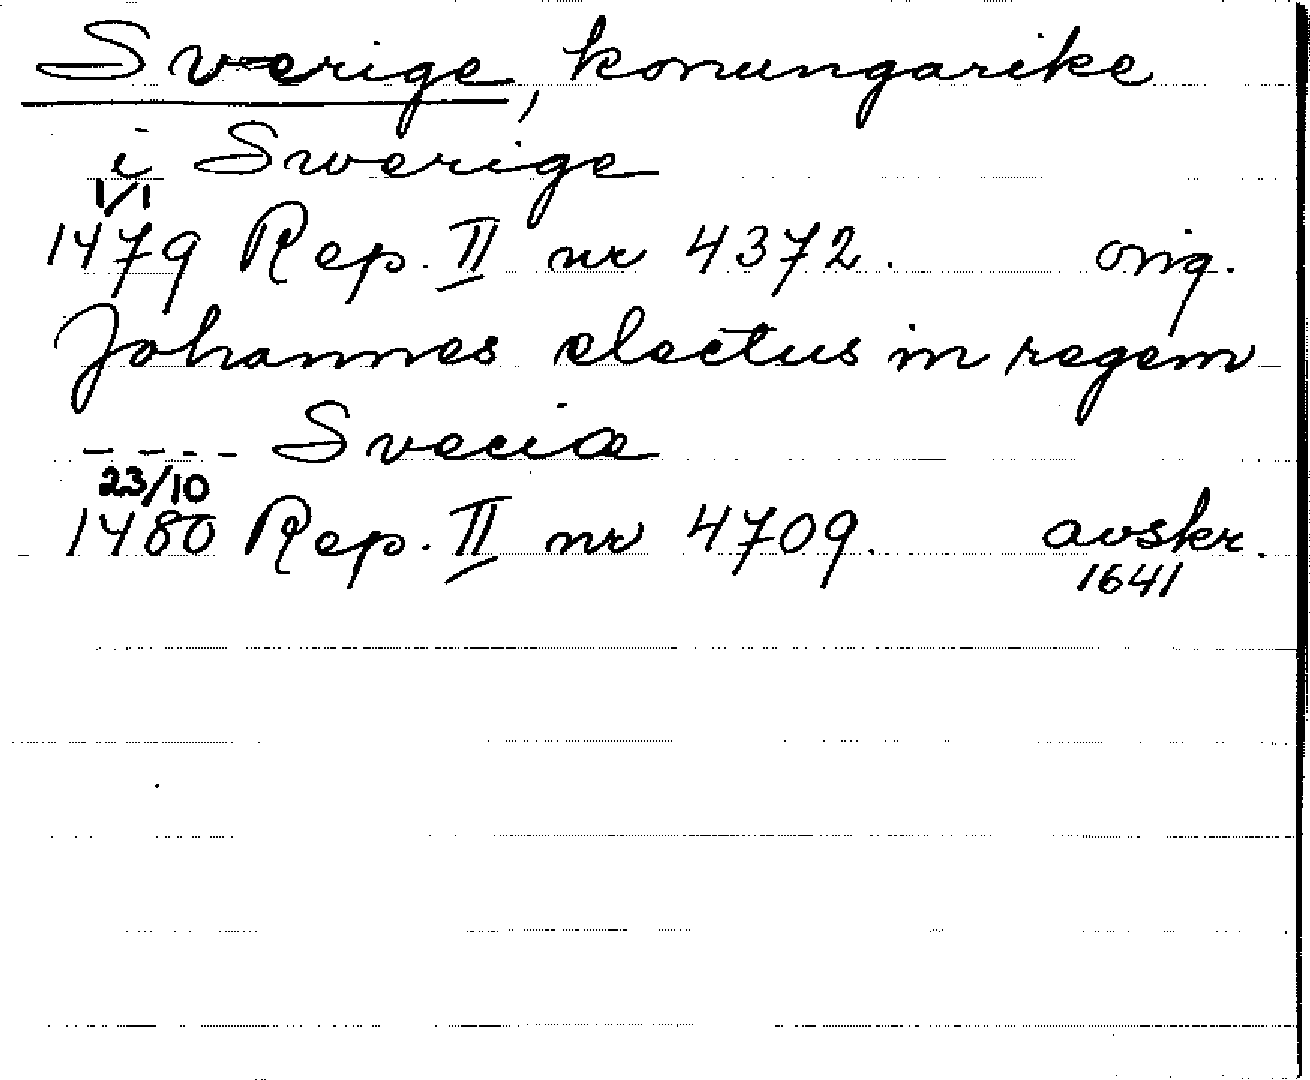 Sverige, konungarike
i Swerige
1/1
1479 Rep. II nr 4372. orig.
Johannes electus in regem
- - - - Sveciæ
23/10
1480 Rep. II nr 4709. avskr.
1641